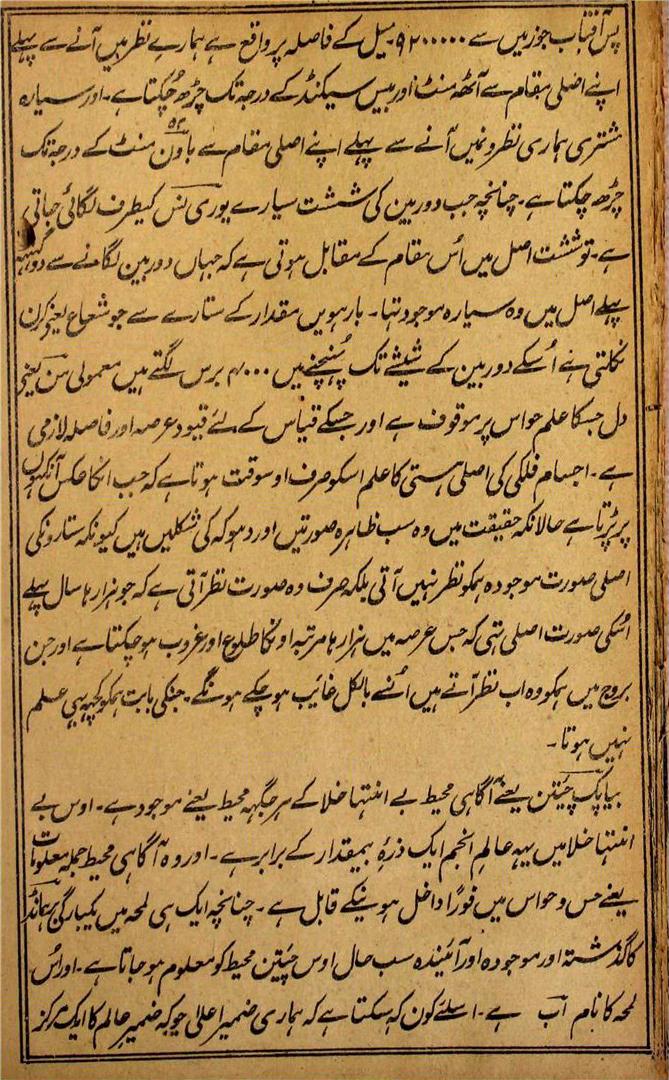 پس آفتاب جوزمیں سے ۹۲۰۰۰۰۰۰ میل کے فاصلہ پر واقع ہے ہمارے نظر میں آنے سے پہلے
اپنے اصلی مقام سے آٹھ منٹ اور بیس سیکنڈ کے درجہ تک چڑھ چُکتا ہے۔ اور سیارہ
مشتری ہماری نظرونمیں آنے سے پہلے اپنے اصلی مقام سے باون ۵۲ منٹ کے درجہ تک
چڑھ چکتا ہے۔ چنانچہ جب دوربین کی شست سیارے یوری نس کیطرف لگائی جاتی
ہے۔ تو شست اصل میں اُس مقام کے مقابل ہوتی ہے کہ جہاں دوربین لگانے سے دو گہنٹہ
پہلے اصل میں وہ سیارہ موجود تہا۔ بارہویں مقدار کے ستارے سے جو شعاع یعنے کرن
نکلتی ہے اُسکے دوربین کے شیشے تک پُہنچنے میں ۴۰۰۰ برس لگتے ہیں معمولی من یعنے
دل جسکا علم حواس پر موقوف ہے اور جسکے قیاس کے لئے قیود عرصہ اور فاصلہ لازمی
ہے۔ اجسام فلکی کی اصلی ہستی کا علم اسکو صرف اوسوقت ہوتا ہے کہ جب انکا عکس آنکہوں
پر پڑتا ہے حالانکہ حقیقت میں وہ سب ظاہرہ صورتیں اور دہوکہ کی شکلیں ہیں کیونکہ ستارونکی
اصلی صورت موجودہ ہمکو نظر نہیں آتی بلکہ صرف وہ صورت نظر آتی ہے کہ جو ہزارہا سال پہلے
اُسکی صورت اصلی تہی کہ جس عرصہ میں ہزارہا مرتبہ اونکا طلوع اور غروب ہوچکتا ہے اور جن
بروج میں ہمکو وہ اب نظر آتے ہیں اُنسے بالکل غایب ہوچکے ہونگے۔ جنکی بابت ہمکو کچہہ بہی علم
نہیں ہوتا۔
بیاپک چیتن یعنے آگاہی محیط بے انتہا خلا کے ہر جگہہ محیط یعنے موجود ہے۔ اوس بے
انتہا خلا میں یہہ عالم انجم ایک ذرۂ بیمقدار کے برابر ہے۔ اور وہ آگاہی محیط جملہ معلومات
یعنے حس و حواس میں فوراً داخل ہونیکے قابل ہے۔ چنانچہ ایک ہی لمحہ میں یکبارگی برہمانڈ
کا گذشتہ اور موجودہ اور آئیندہ سب حال اوس چیتن محیط کو معلوم ہوجاتا ہے۔ اور اُس
لمحہ کا نام اب ہے۔ اسلئے کون کہسکتا ہے کہ ہماری ضمیر اعلیٰ جوکہ ضمیر عالم کا ایک مرکز